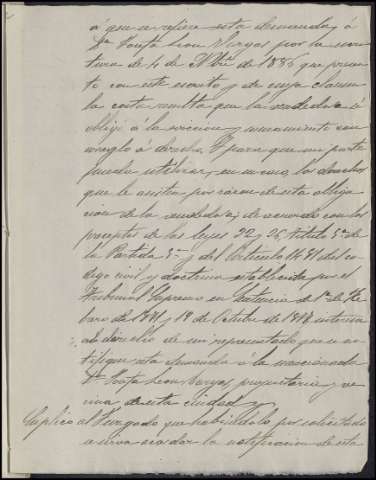 á que se refiere esta demanda, á
Dª Vargas por la escri-
tura de 4 de de 1886 que presen-
to con este escrito y de cuya clausu-
la cuarta resulta que la vendedora se
obligó á la evicion y saneamiento con
arreglo á derecho. Y para que mi parte
pueda utilizar, en su caso, los derechos
que le asisten por razon de esta obliga-
cion de la vendedora; de acuerdo con los
preceptos de las leyes 32 y 36, titulo 5º de
la Partida 5ª y del articulo 1481 del có-
digo civil y doctrina establecida por el
Tribunal Supremo en Sentencia de 1º de Fe-
brero de y 19 de Octubre de interesa
al derecho de mi representado que se no-
tifique esta demanda á la mencionada
Dª Vargas, propietaria y ve-
cina de esta ciudad y
Suplico al Juzgado que habiendolo por solicitado
se sirva acordar la notificacion de esta